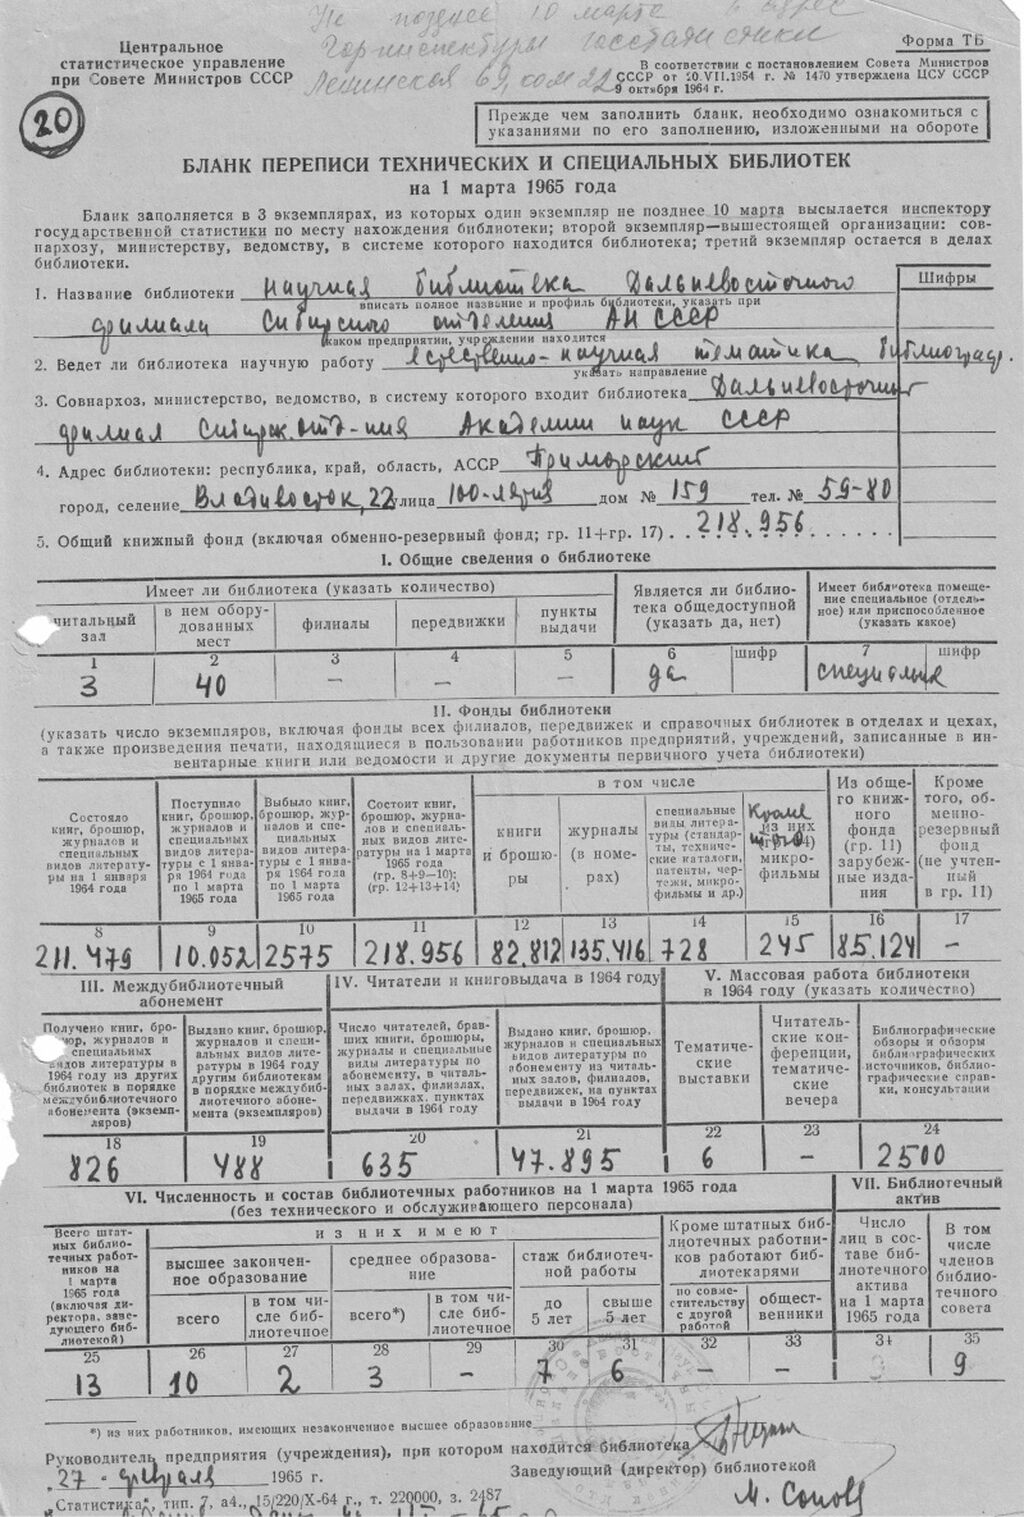 Не позднее 10 марта в адрес
Горинспектуры Госстатистики
Ленинская 69, ком 22
Центральное
статистическое управление
при Совете Министров СССР
Форма ТБ
В соответствии с постановлением Совета Министров
СССР от 20.VII.1954 г. № 1470 утверждена ЦСУ СССР
9 октября 1964 г.
20
Прежде чем заполнить бланк, необходимо ознакомиться с
указаниями по его заполнению, изложенными на обороте
БЛАНК ПЕРЕПИСИ ТЕХНИЧЕСКИХ И СПЕЦИАЛЬНЫХ БИБЛИОТЕК
на 1 марта 1965 года
Бланк заполняется в 3 экземплярах, из которых один экземпляр не позднее 10 марта высылается инспектору
государственной статистики по месту нахождения библиотеки; второй экземпляр—вышестоящей организации: сов-
нархозу, министерству, ведомству, в системе которого находится библиотека; третий экземпляр остается в делах
библиотеки.
Шифры
1. Название библиотеки Научная библиотека Дальневосточного
вписать полное название и профиль библиотеки, указать при
филиала Сибирского отделения АН СССР
каком предприятии, учреждении находится
2. Ведет ли библиотека научную работу естественно-научная тематика библиограф.
указать направление
3. Совнархоз, министерство, ведомство, в систему которого входит библиотека Дальневосточный
филиал Сибирск. отд-ния Академии наук СССР
4. Адрес библиотеки: республика, край, область, АССР Приморский
город, селение Владивосток, 22 улица 100-летия дом № 159 тел. № 59-80
5. Общий книжный фонд (включая обменно-резервный фонд; гр. 11+гр. 17) 218.956
I. Общие сведения о библиотеке
Имеет ли библиотека (указать количество)
Является ли библио-
тека общедоступной
(указать да, нет)
Имеет библиотека помеще-
ние специальное (отдель-
ное) или приспособленное
(указать какое)
читальный
зал
в нем обору-
дованных
мест
филиалы
передвижки
пункты
выдачи
1 2 3 4 5 6 шифр 7 шифр
3 40 — — — да специальное
II. Фонды библиотеки
(указать число экземпляров, включая фонды всех филиалов, передвижек и справочных библиотек в отделах и цехах,
а также произведения печати, находящиеся в пользовании работников предприятий, учреждений, записанные в ин-
вентарные книги или ведомости и другие документы первичного учета библиотеки)
Состояло
книг, брошюр,
журналов и
специальных
видов литерату-
ры на 1 января
1964 года
Поступило
книг, брошюр,
журналов и
специальных
видов литера-
туры с 1 янва-
ря 1964 года
по 1 марта
1965 года
Выбыло книг,
брошюр, жур-
налов и спе-
циальных
видов литера-
туры с 1 янва-
ря 1964 года
по 1 марта
1965 года
Состоит книг,
брошюр, журна-
лов и специаль-
ных видов лите-
ратуры на 1 марта
1965 года
(гр. 8+9—10);
(гр. 12+13+14)
в том числе
книги
и брошю-
ры
журналы
(в номе-
рах)
специальные
виды литера-
туры (стандар-
ты, техниче-
ские каталоги,
патенты, чер-
тежи, микро-
фильмы и др.)
Кроме
того
из них
(гр. 14)
микро-
фильмы
Из обще-
го книж-
ного
фонда
(гр. 11)
зарубеж-
ные изда-
ния
Кроме
того, об-
менно-
резервный
фонд
(не учтен-
ный
в гр. 11)
8 9 10 11 12 13 14 15 16 17
211.479 10.052 2575 218.956 82.812 135.416 728 245 85.124 —
III. Междубиблиотечный
абонемент
IV. Читатели и книговыдача в 1964 году
V. Массовая работа библиотеки
в 1964 году (указать количество)
Получено книг, бро-
шюр, журналов и
специальных
видов литературы в
1964 году из других
библиотек в порядке
междубиблиотечного
абонемента (экземп-
ляров)
Выдано книг, брошюр,
журналов и специ-
альных видов лите-
ратуры в 1964 году
другим библиотекам
в порядке междубиб-
лиотечного абоне-
мента (экземпляров)
Число читателей, брав-
ших книги, брошюры,
журналы и специальные
виды литературы по
абонементу, в читаль-
ных залах, филиалах,
передвижках, пунктах
выдачи в 1964 году
Выдано книг, брошюр,
журналов и специальных
видов литературы по
абонементу из читаль-
ных залов, филиалов,
передвижек, на пунктах
выдачи в 1964 году
Тематиче-
ские
выставки
Читатель-
ские кон-
ференции,
тематиче-
ские
вечера
Библиографические
обзоры и обзоры
библиографических
источников, библио-
графические справ-
ки, консультации
18 19 20 21 22 23 24
826 488 635 47.895 6 — 2500
VI. Численность и состав библиотечных работников на 1 марта 1965 года
(без технического и обслуживающего персонала)
VII. Библиотечный
актив
Всего штат-
ных библио-
течных работ-
ников на
1 марта
1965 года
(включая ди-
ректора, заве-
дующего биб-
лиотекой)
из них имеют
высшее закончен-
ное образование
среднее образова-
ние
стаж библиотеч-
ной работы
Кроме штатных биб-
лиотечных работни-
ков работают биб-
лиотекарями
Число
лиц в сос-
таве биб-
лиотечного
актива
на 1 марта
1965 года
В том
числе
членов
библио-
течного
совета
всего
в том чи-
сле биб-
лиотечное
всего*)
в том чи-
сле биб-
лиотечное
до
5 лет
свыше
5 лет
по совме-
стительству
с другой
работой
общест-
венники
25 26 27 28 29 30 31 32 33 34 35
13 10 2 3 — 7 6 — — 9
*) из них работников, имеющих незаконченное высшее образование
Руководитель предприятия (учреждения), при котором находится библиотека
27 февраля 1965 г.
Заведующий (директор) библиотекой
„Статистика“, тип. 7, а4., 15/220/X-64 г., т. 220000, з. 2487